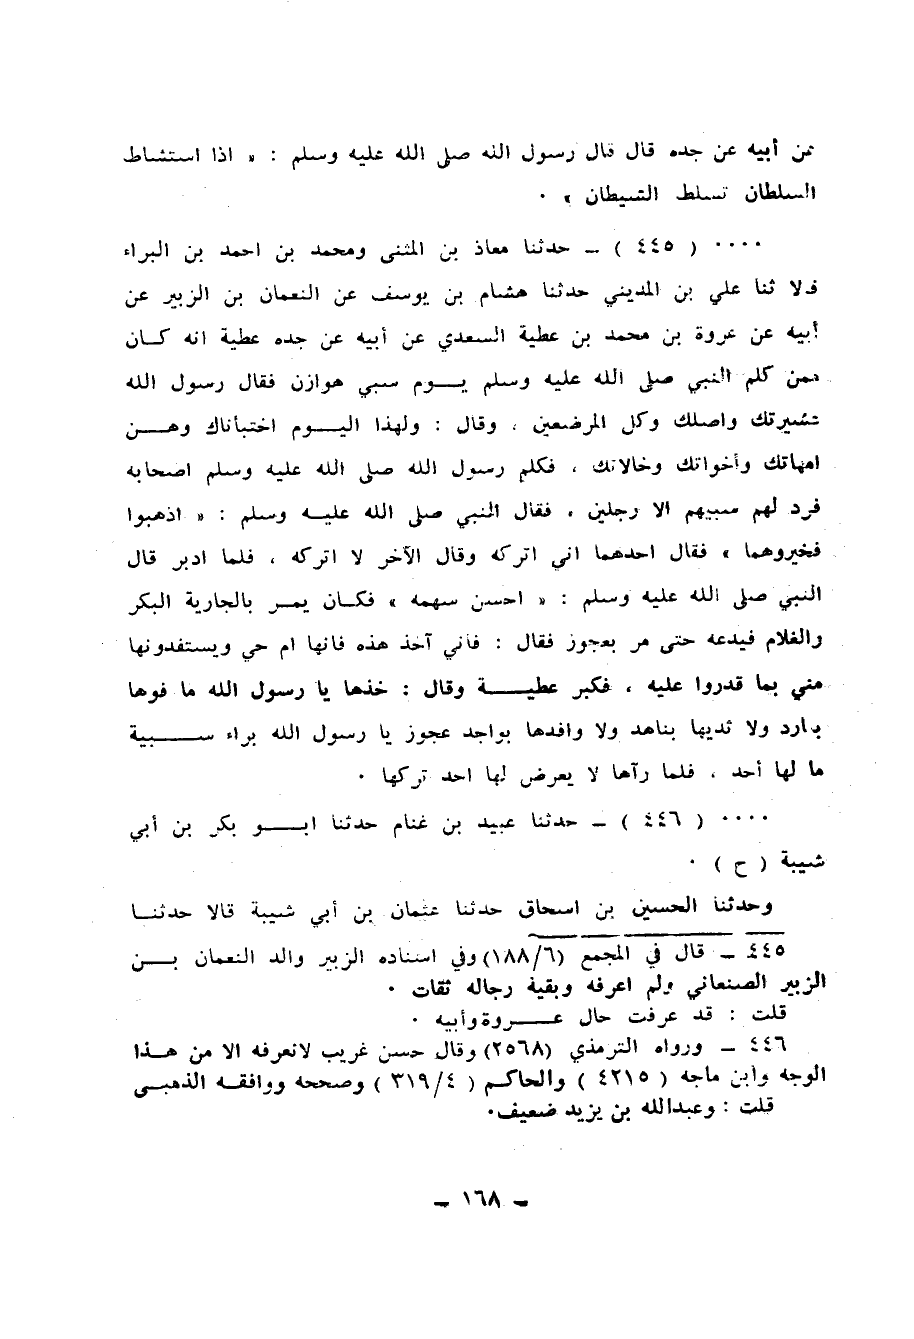 عن أبيه عن جده قال قال رسول الله صلى الله عليه وسلم : « اذا استشاط
السلطان تسلط الشيطان » ٠
٠٠٠٠ ( ٤٤٥ ) ــ حدثنا معاذ بن المثنى ومحمد بن احمد بن البراء
قالا ثنا علي بن المديني حدثنا هشام بن يوسف عن النعمان بن الزبير عن
أبيه عن عروة بن محمد بن عطية السعدي عن أبيه عن جده عطية انه كان
ممن كلم النبي صلى الله عليه وسلم يوم سبي هوازن فقال رسول الله
عشيرتك واصلك وكل المرضعين ، وقال : ولهذا اليوم اختبأناك وهن
امهاتك وأخواتك وخالاتك ، فكلم رسول الله صلى الله عليه وسلم اصحابه
فرد لهم سبيهم الا رجلين ، فقال النبي صلى الله عليه وسلم : « اذهبوا
فخيروهما » فقال احدهما اني اتركه وقال الآخر لا اتركه ، فلما ادبر قال
النبي صلى الله عليه وسلم : « احسن سهمه » فكان يمر بالجارية البكر
والغلام فيدعه حتى مر بعجوز فقال : فأني آخذ هذه فانها ام حي ويستفدونها
مني بما قدروا عليه ، فكبر عطية وقال : خذها يا رسول الله ما فوها
بارد ولا ثديها بناهد ولا وافدها بواجد عجوز يا رسول الله براء سبية
ما لها أحد ، فلما رآها لا يعرض لها احد تركها ٠
٠٠٠٠ ( ٤٤٦ ) ــ حدثنا عبيد بن غنام حدثنا ابو بكر بن أبي
شيبة ( ح ) ٠
وحدثنا الحسين بن اسحاق حدثنا عثمان بن أبي شيبة قالا حدثنا
٤٤٥ ــ قال في المجمع (١٨٨/٦) وفي اسناده الزبير والد النعمان بن
الزبير الصنعاني ولم اعرفه وبقية رجاله ثقات ٠
قلت : قد عرفت حال عروة وأبيه ٠
٤٤٦ ــ ورواه الترمذي (٢٥٦٨) وقال حسن غريب لانعرفه الا من هذا
الوجه وابن ماجه ( ٤٢١٥ ) والحاكم ( ٣١٩/٤ ) وصححه ووافقه الذهبي
قلت : وعبدالله بن يزيد ضعيف٠
ــ ١٦٨ ــ